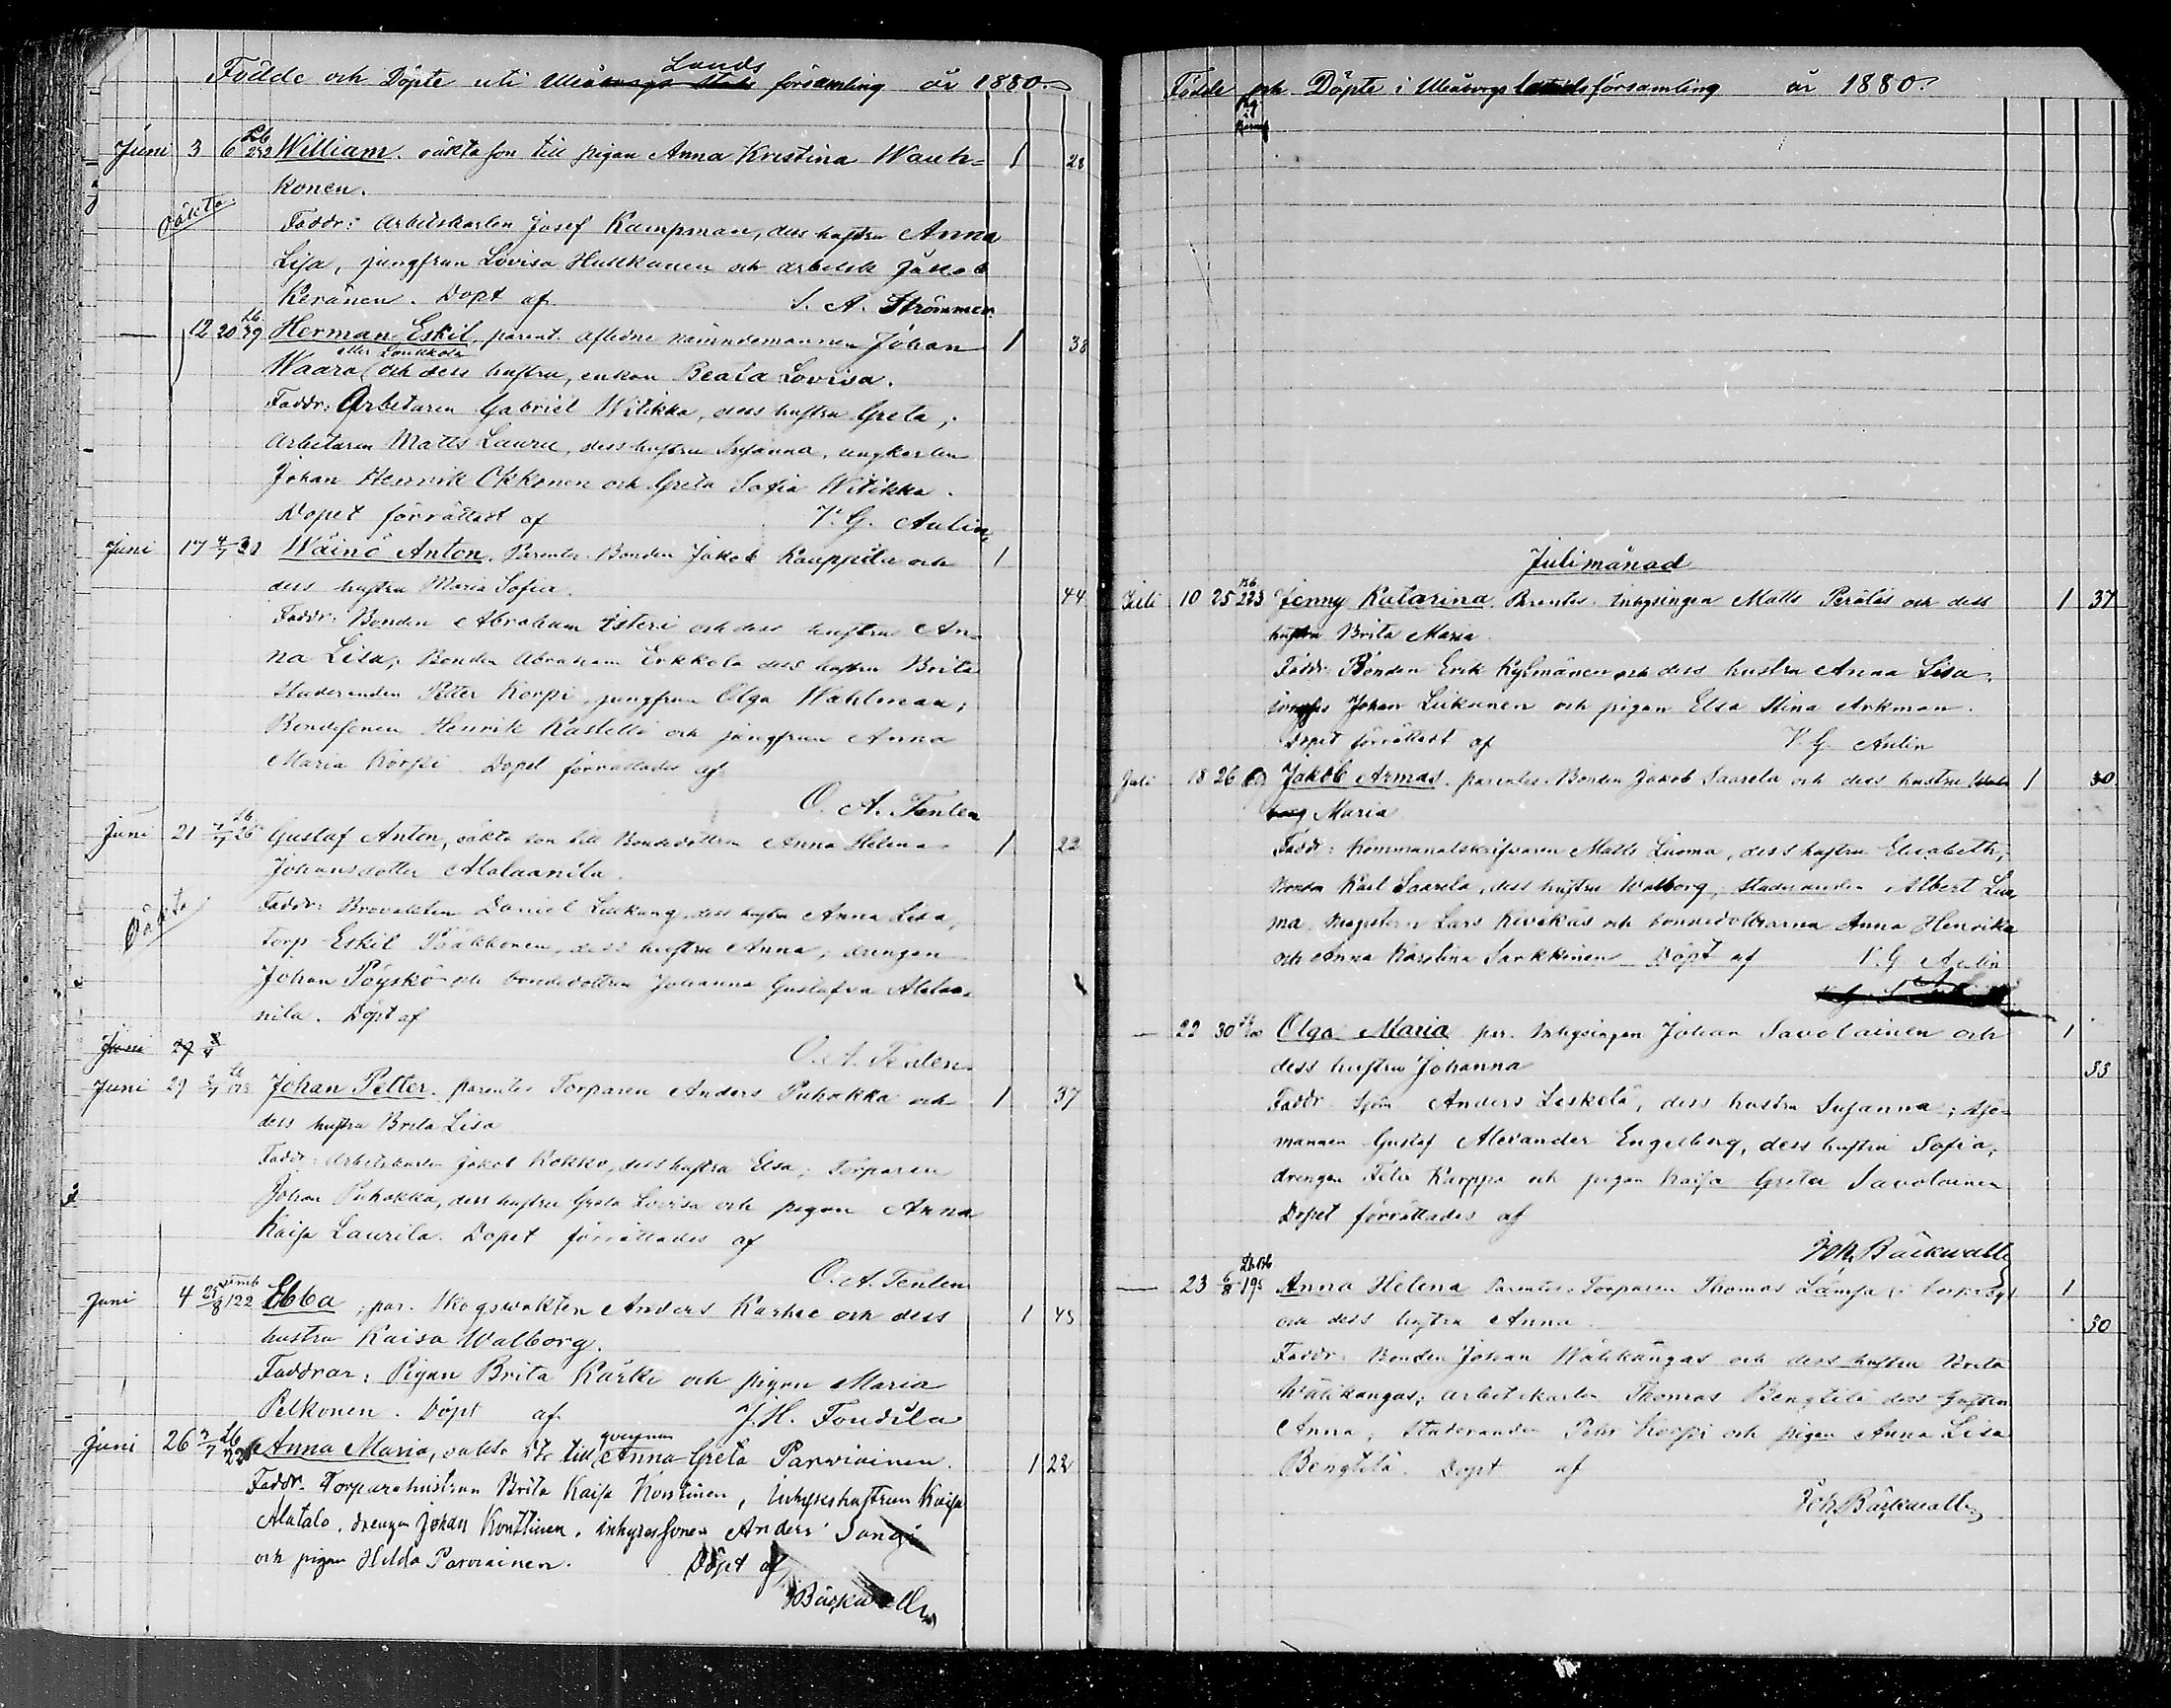 Födde och Döpte uti Uleåborgs Stads Lands församling år 1880.
Juni 3 6 Lb 292 William. oäkta son till pigan Anna Kristina Wauh= 1 28
konen.
Oäkta
Faddr: Arbetskarlen Josef Kampman, dess hustru Anna
Lisa, jungfrun Lovisa Hulkkonen och arbetsk Jakob
Keränen. Döpt af S. A. Strömmer.
— 12 20 Lb. 79 Herman Eskil, parent. aflidne nämndemannen Johan 1 38
eller Loukkola
Waara och dess hustru, enkan Beata Lovisa.
Faddr: Arbetaren Gabriel Witikka, dess hustru Greta,
Arbetaren Matts Lauru, dess hustru Susanna, ungkarlen
Johan Henrik Okkonen och Greta Sofia Witikka.
Dopet förrättadt af V. G. Aulin
Juni 17 4/7 Wäinö Anton. Parentes Bonden Jakob Kauppila och 1
dess hustru Maria Sofia. 44
Faddr: Bonden Abraham Isteri och dess hustru An=
na Lisa, Bonden Abraham Erkkola dess hustru Brita
Studeranden Petter Korpi, jungfrun Olga Wahlman;
Bondesonen Henrik Kastelli och jungfrun Anna
Maria Korpi. Dopet förrättades af
O. A. Tenlen
Juni 21 Lb 26 Gustaf Anton, oäkta son till Bondedottren Anna Helena 1 22
Johansdotter Alalaanila.
Oäkta
Faddr: Brovakten Daniel Luckang, dess hustru Anna Lisa,
torp Eskil Pääkkonen, dess hustru Anna, drengen
Johan Pöyskö och bondedottren Johanna Gustafva Alalaa=
nila. Döpt af
O. A. Tenlen
Juni 29
Juni 29 Johan Petter. parentes Torparen Anders Puhakka och 1 37
dess hustru Brita Lisa
Faddr: Arbetskarlen Jakob Kokko, dess hustru Elsa; Torparen
Johan Puhakka, dess hustru Greta Lovisa och pigan Anna
Kaisa Laurila. Dopet förrättades af
O. A. Tenlen
Juni 4 122 Ebba, par. Skogswakten Anders Karhu och dess 1 45
hustru Kaisa Walborg.
Faddrar: Pigan Brita Kärki och pigan Maria
Pelkonen. Döpt af J. H. Fondila
Juni 26 Anna Maria, oäkta till Anna Greta Parviainen. 1 22
Faddr. Torparehustrun Brita Kaisa Konttinen, Inhyseshustrun Kaisa
Alatalo, drengen Johan Konttinen, inhysessonen Anders
och pigan Hilda Parviainen. Döpt af
Bäckwall
Födde och Döpte i Uleåborgs Landsförsamling år 1880.
Julimånad
Juli 10 25 223 Jenny Katarina. Parentes. Inhysingen Matts Perälä och dess 1 37
hustru Brita Maria.
Faddr: Bonden Erik Kylmänen och dess hustru Anna Lisa,
Johan Liikanen och pigan Elsa Stina Arkman.
Dopet förrättadt af V. G. Aulin
Juli 18 26 Jakob Armas. parentes Bonden Jakob Saarela och dess hustru 1 30
Maria
Faddr: Kommunalskrifvaren Matts Luoma, dess hustru Elisabeth;
Bonden Karl Saarela, dess hustru Walborg; studeranden Albert Luo
ma, magistern Lars Kivekäs och bondedöttrarna Anna Henrika
och Anna Karolina Sarkkinen. Döpt af V. G. Aulin
— 22 30 Olga Maria par. Inhysingen Johan Savolainen och 1
dess hustru Johanna 33
Faddr. Sjöm Anders Leskelä, dess hustru Susanna; sjö=
mannen Gustaf Alexander Engelberg, dess hustru Sofia,
drengen Felix Karppa och pigan Kaisa Greta Savolainen
Dopet förrättades af
Joh. Bäckwall
— 23 6/8 195 Anna Helena Parentes: Torparen Thomas Lämsä 1
och dess hustru Anna. 30
Faddr. Bonden Johan Wälikangas och dess hustru Brita
Wälikangas; arbetskarlen Thomas Bengtilä dess hustru
Anna; Studeranden Pehr Korpi och pigan Anna Lisa
Bengtilä. Döpt af
Joh. Bäckwall